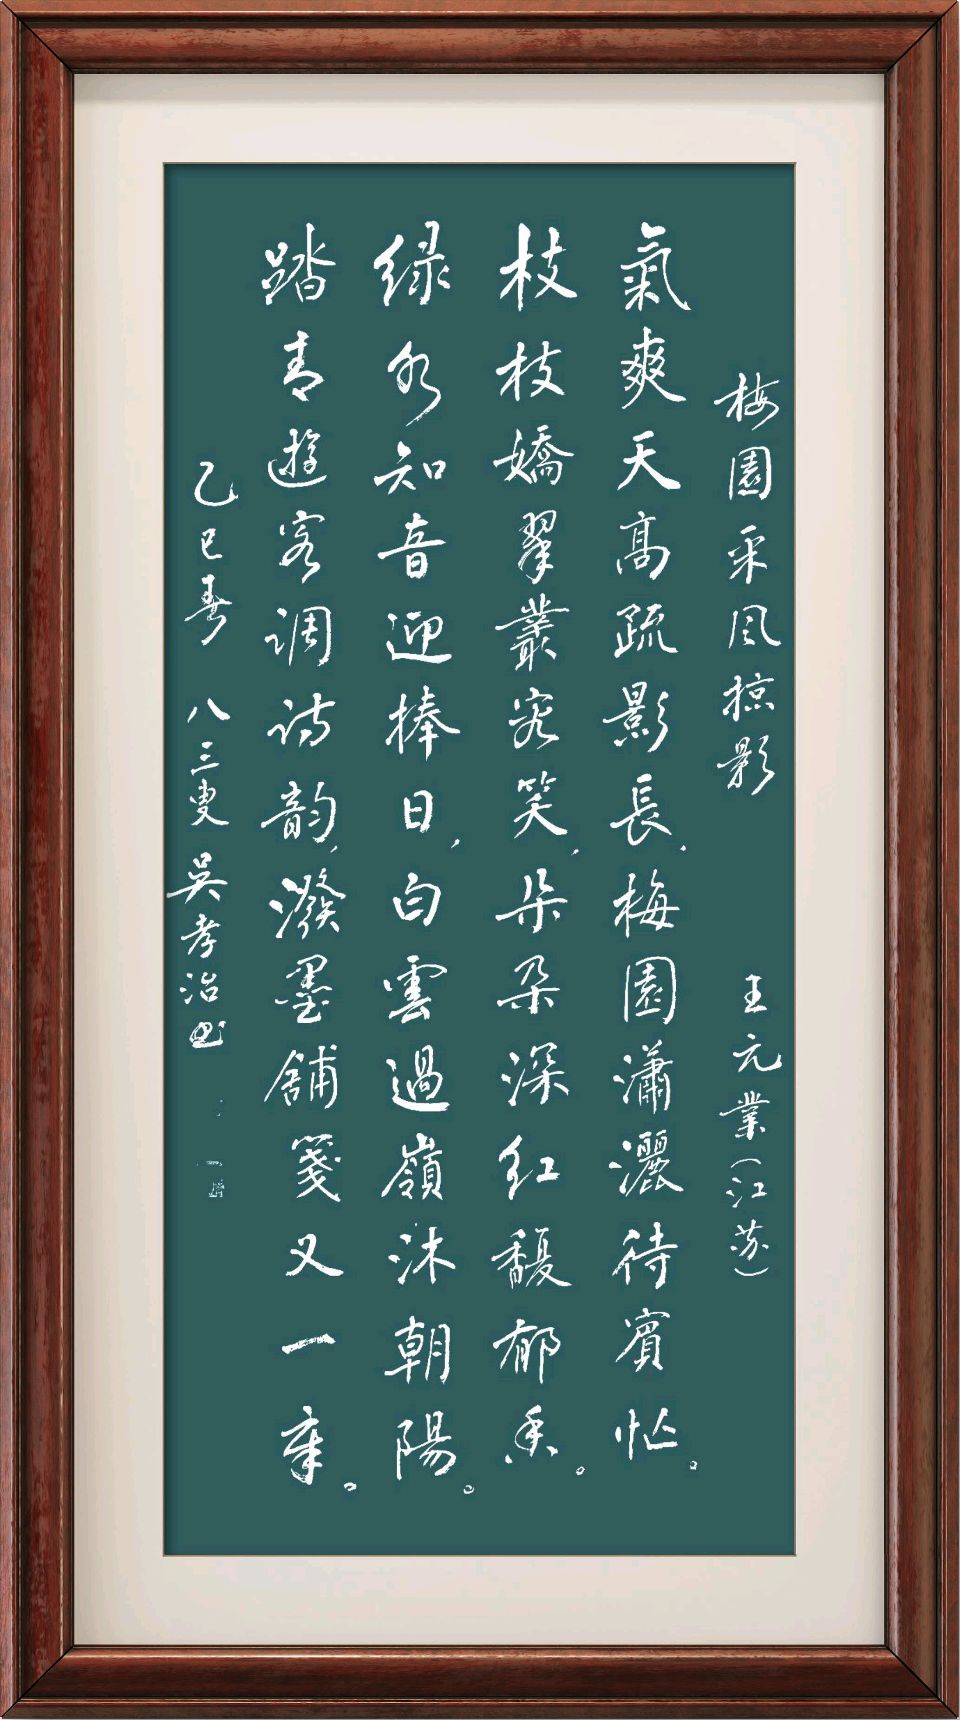 梅園采风掠影 王元業（江苏）
氣爽天髙疏影長，梅園瀟灑待賓忙。
枝枝嬌翠叢容笑，朵朵深红馥郁香。
绿水知音迎捧日，白雲過嶺沐朝陽。
踏青遊客调诗韵，潑墨舖箋又一章。
乙巳春 八三叟 吴孝治书